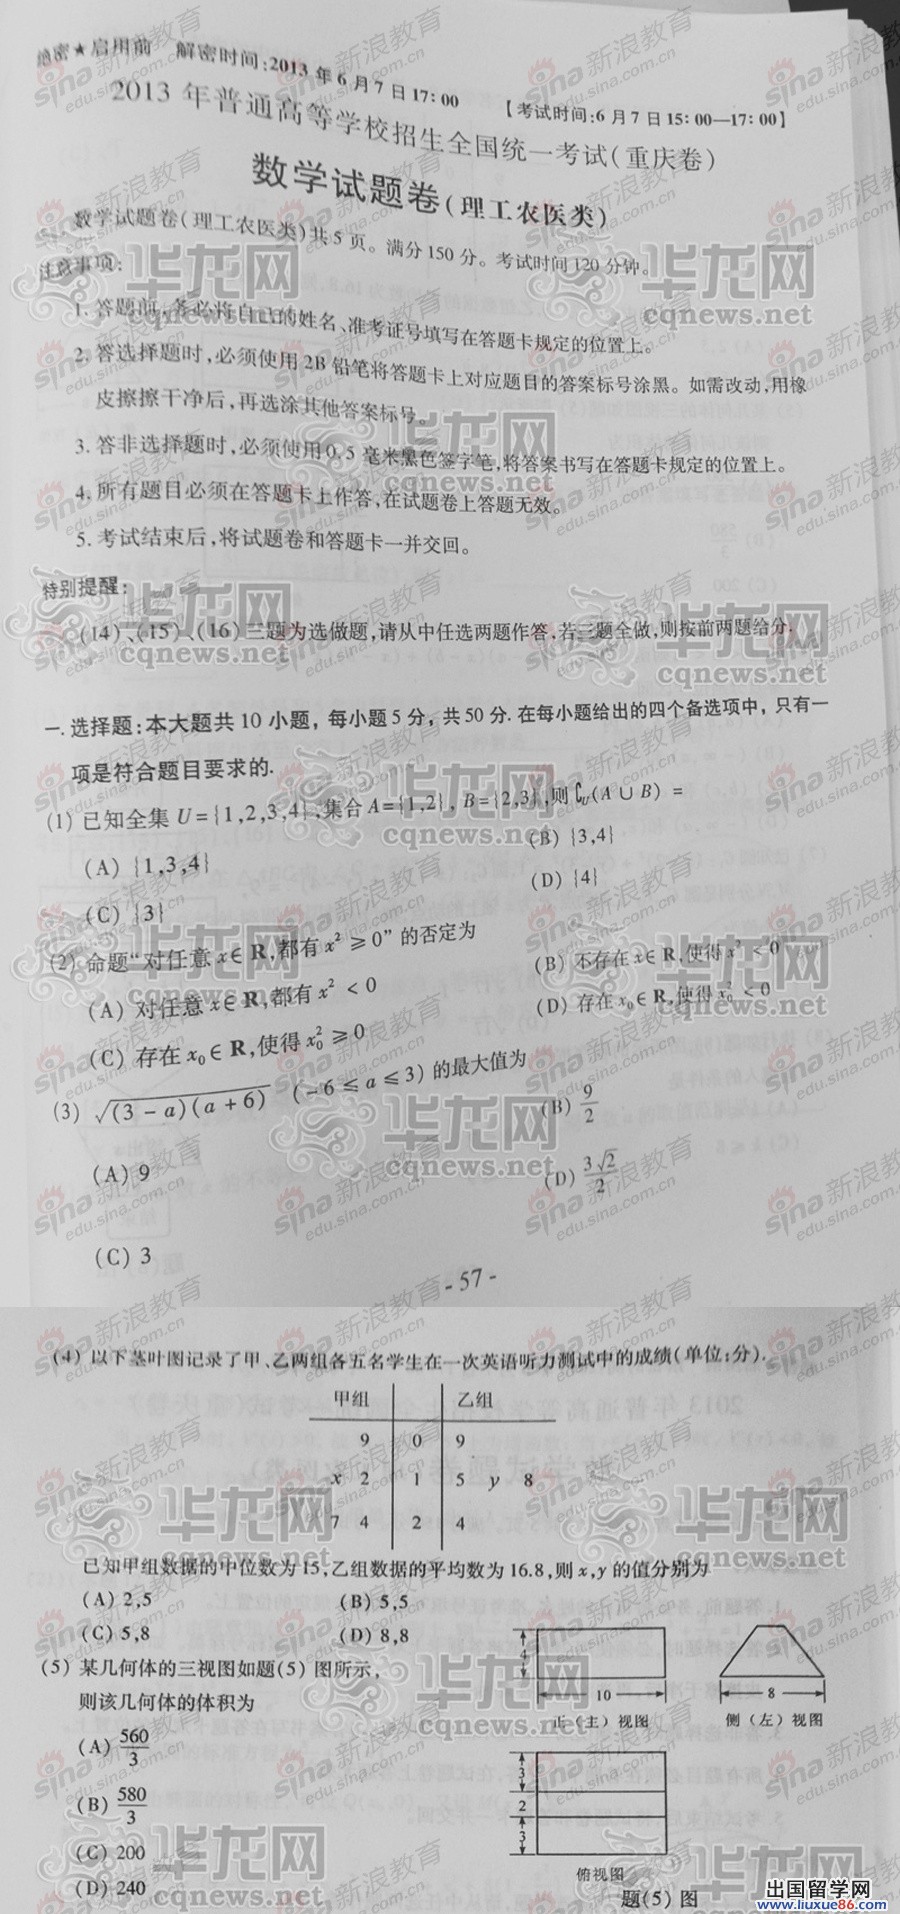 绝密★启用前 解密时间:2013年6月7日17:00 【考试时间:6月7日15:00—17:00】
2013年普通高等学校招生全国统一考试(重庆卷)
数学试题卷(理工农医类)
数学试题卷(理工农医类)共5页。满分150分。考试时间120分钟。
注意事项:
1. 答题前,务必将自己的姓名、准考证号填写在答题卡规定的位置上。
2. 答选择题时,必须使用2B铅笔将答题卡上对应题目的答案标号涂黑。如需改动,用橡
皮擦擦干净后,再选涂其他答案标号。
3. 答非选择题时,必须使用0.5毫米黑色签字笔,将答案书写在答题卡规定的位置上。
4. 所有题目必须在答题卡上作答,在试题卷上答题无效。
5. 考试结束后,将试题卷和答题卡一并交回。
特别提醒:
(14)、(15)、(16)三题为选做题,请从中任选两题作答,若三题全做,则按前两题给分.
一. 选择题:本大题共10小题,每小题5分,共50分.在每小题给出的四个备选项中,只有一
项是符合题目要求的.
(1) 已知全集U={1,2,3,4},集合A={1,2}, B={2,3},则∁U(A∪B) =
(A) {1,3,4} (B) {3,4}
(C) {3} (D) {4}
(2) 命题“对任意x∈R,都有x²≥0”的否定为
(A) 对任意x∈R,都有x²<0 (B) 不存在x∈R,使得x²<0
(C) 存在x₀∈R,使得x₀²≥0 (D) 存在x₀∈R,使得x₀²<0
(3) √(3-a)(a+6) (-6≤a≤3)的最大值为
(A) 9 (B) 9/2
(C) 3 (D) 3√2/2
- 57 -
(4) 以下茎叶图记录了甲、乙两组各五名学生在一次英语听力测试中的成绩(单位:分).
甲组 乙组
9 0 9
x 2 1 5 y 8
7 4 2 4
已知甲组数据的中位数为15,乙组数据的平均数为16.8,则x,y的值分别为
(A) 2,5 (B) 5,5
(C) 5,8 (D) 8,8
(5) 某几何体的三视图如题(5)图所示,
则该几何体的体积为
(A) 560/3
(B) 580/3
(C) 200
(D) 240
4
10
正(主)视图
8
侧(左)视图
3
2
3
俯视图
题(5)图
华龙网
cqnews.net
sina新浪教育
edu.sina.com.cn
出国留学网
www.liuxue86.com